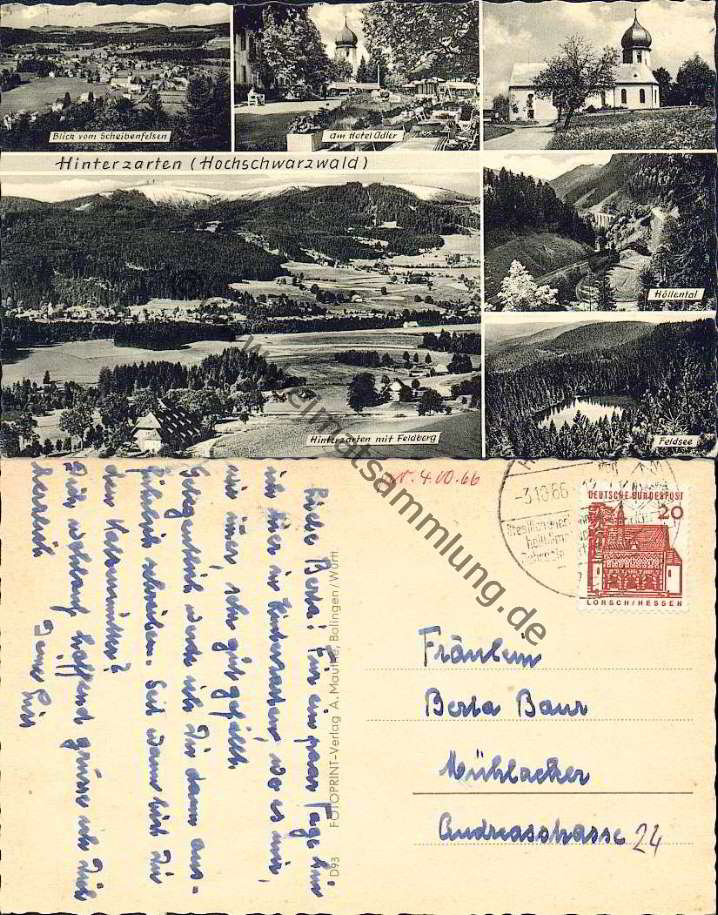 Blick vom Scheibenfelsen
am Hotel Adler
Hinterzarten (Hochschwarzwald)
Höllental
Hinterzarten mit Feldberg
Feldsee
www.heimatsammlung.de
4.10.66
-3.10.66
DEUTSCHE BUNDESPOST
20
LORSCH/HESSEN
Liebe Berta! Für ein paar Tage bin
ich hier in Hinterzarten, wo es mir,
wie immer, sehr gut gefällt.
Gelegentlich werde ich Dir dann aus-
führlich schreiben. Seit wann bist Du
der
hoffend grüsse ich Dich
herzlich
Deine
D93 FOTOPRINT-Verlag A. Mauthe, Balingen/Württ.
Fräulein
Berta Baur
Mühlacker
Andreasstrasse 24